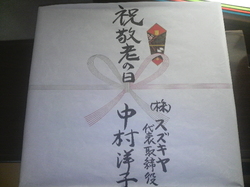 祝敬老の日
(株)スズキヤ
代表取締役
中村洋子